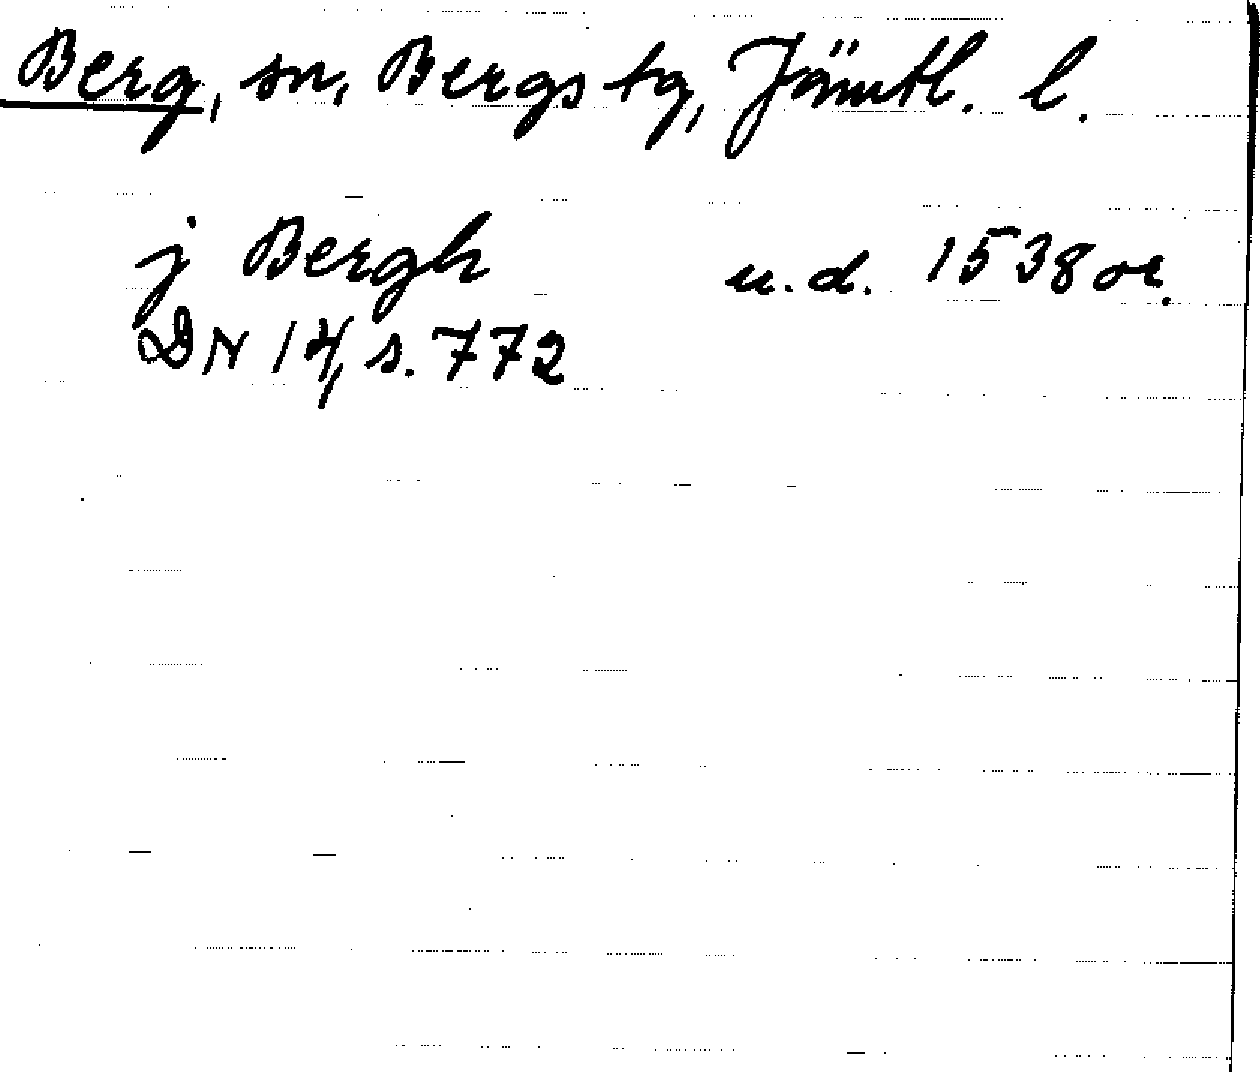 Berg, sn, Bergs tg, Jämtl. l.
j Bergh u.d. 1538 or.
DN 14, s. 772